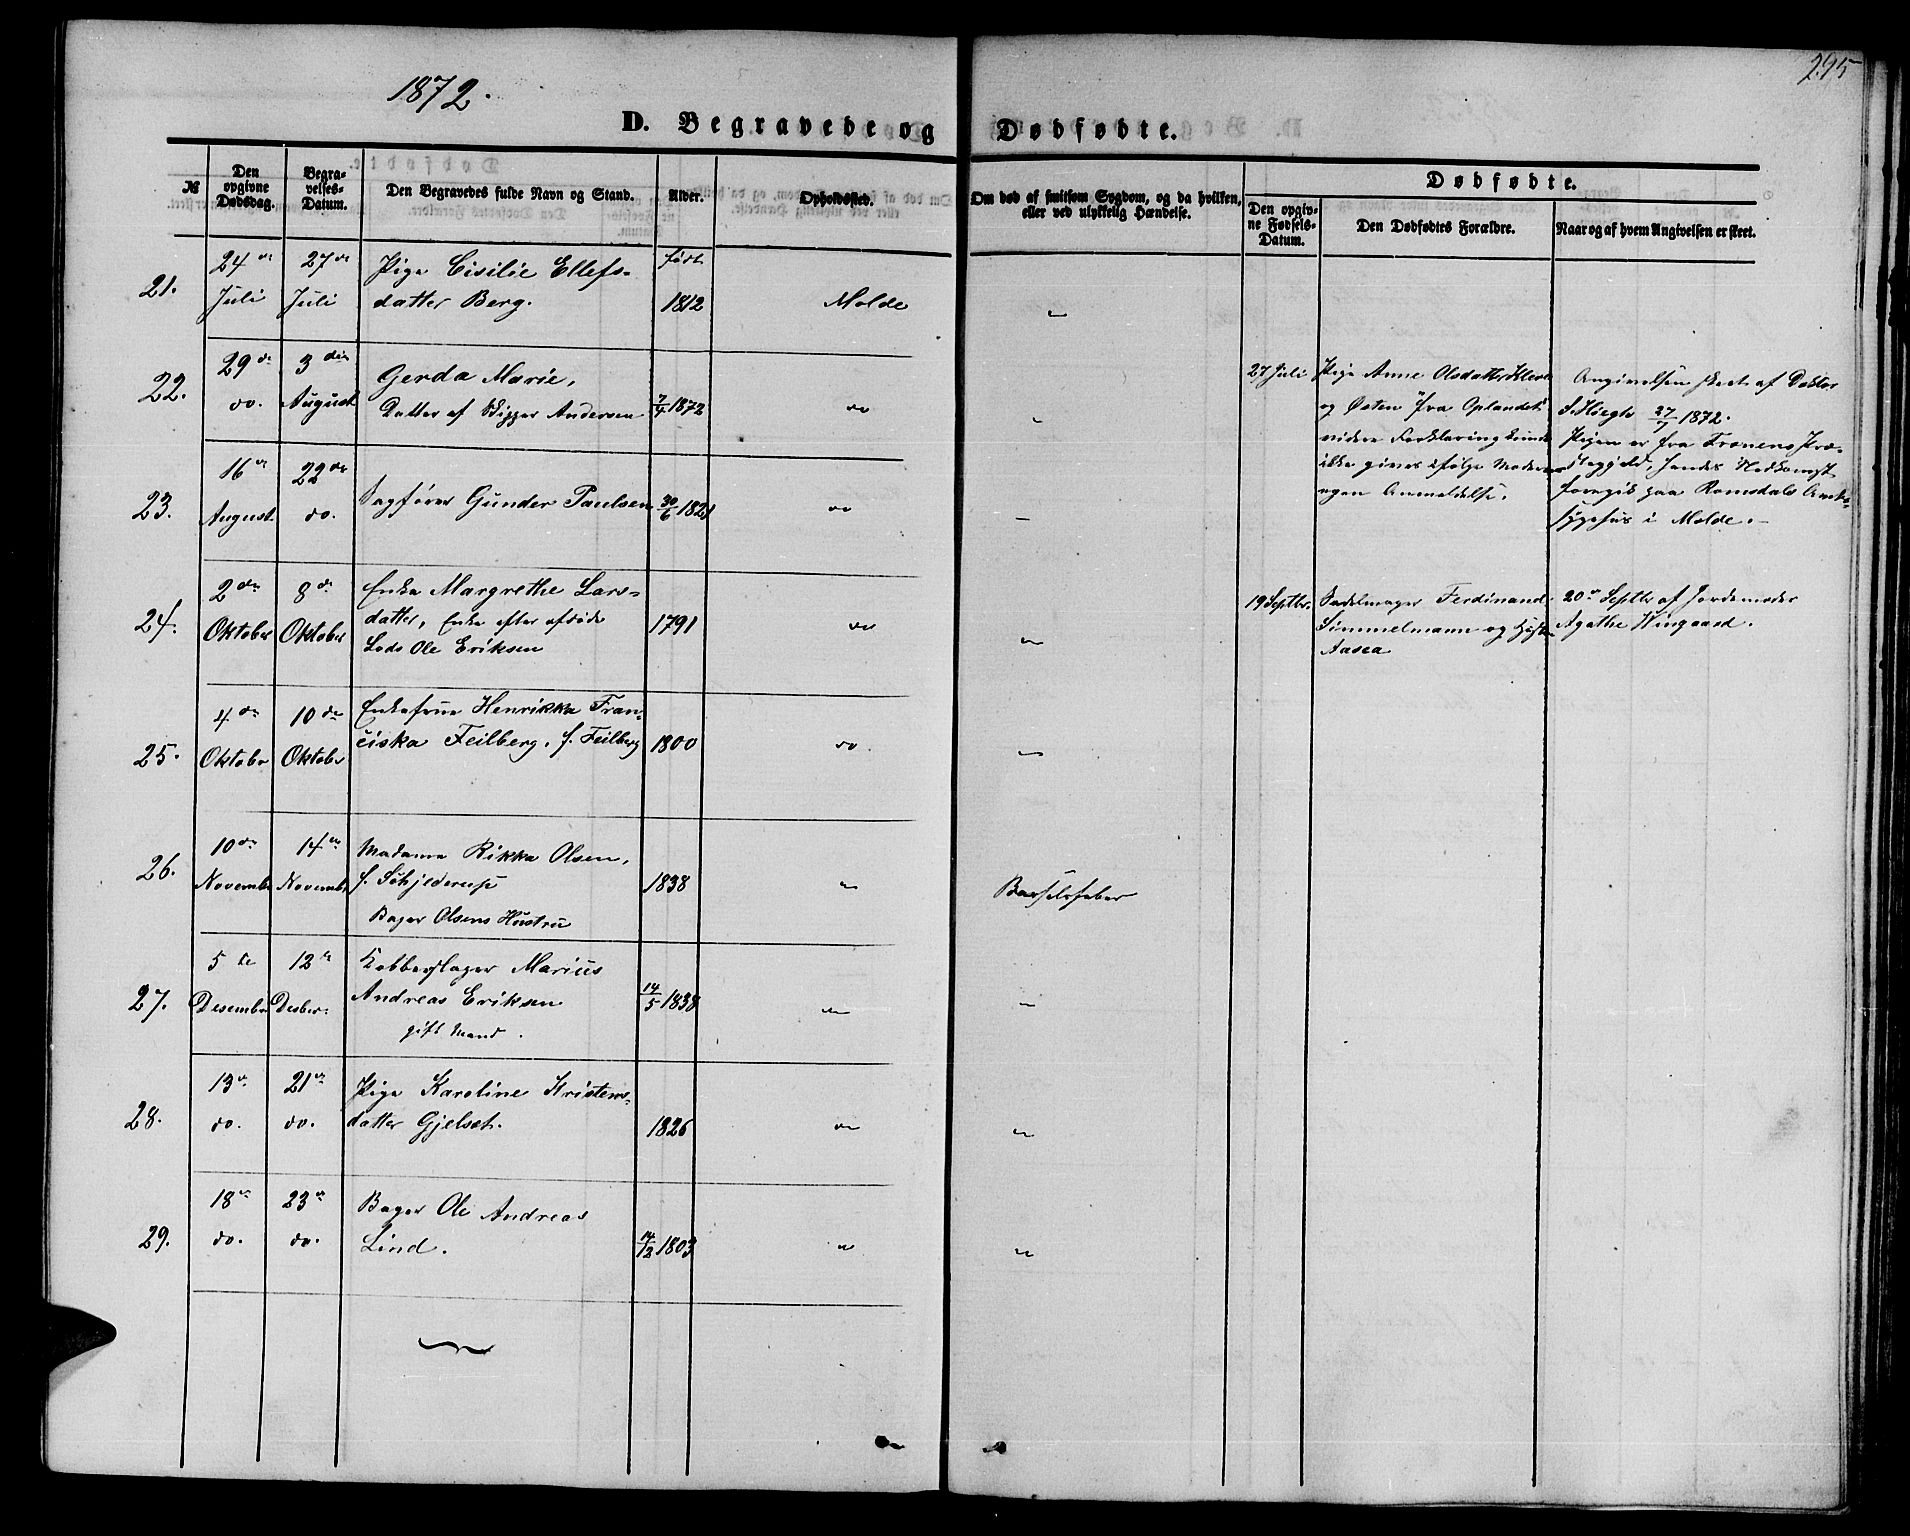 1872.
295
D. Begravede og Dødfødte.
№
Den opgivne Dødsdag.
Begravelses-Datum.
Den Begravedes fulde Navn og Stand.
Alder.
Opholdssted.
Om død af smitsom Sygdom, og da hvilken,
eller ved ulykkelig Hændelse.
Dødfødte.
Den opgivne Fødsels-Datum.
Den Dødfødtes Forældre.
Naar og af hvem Angivelsen er skeet.
21.
24de Juli
27de Juli
Pige Cisilie Ellefs-
datter Berg.
født
1812
Molde
22.
29de
do.
3die
August
Gerda Marie,
Datter af Andersen
7/4 1872
do
23.
16de
August
22de
do.
Sagfører Gunder Paulsen
30/6 1821
do
24.
2den
Oktober
8de
Oktober
Enke Margrethe Lars-
datter, Enke efter afdøde
Lods Ole Eriksen
1791
do
25.
4de
Oktober
10de
Oktober
Enkefrue Henrikka Fran-
ciska Feilberg, f. Feilberg
1800
do.
26.
10de
Novembr
14de
Novembr
Madame Rikka Olsen,
f. Schjelderup
Bager Olsens Hustru
1838
"
Barselsfeber
27.
5te
Desember
12te
Desber:
Kobberslager Marius
Andreas Eriksen
gift Mand.
14/5 1838
"
28.
13de
do.
21de
do.
Pige Karoline Kristens-
datter Gjelset.
1826
do
29.
18de
do.
23de
do.
Bager Ole Andreas
Lind.
14/12 1803
"
27 Juli
Pige Anne Olsdatter
og Østen "fra Oplandet"
videre Forklaring kunde
ikke gives ifølge Moderens
egen Anmeldelse.
Angivelsen skeet af Doktor
27/7 1872.
Pigen er fra Præ-
stegjeld, hendes Nedkomst
foregik paa Romsdals Amts-
sygehus i Molde.
19 Septbr.
Sadelmager Ferdinand
Simmelmann og Hustru
Aasea
20de Septbr af Jordemoder
Agathe Wingaard.